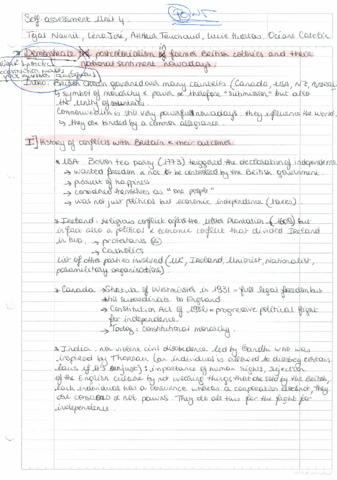 Self assessment Unit 4.
Tejal Navnit, Lena José, Arthur Touchaud, Lucie Moreau, Océane Catebir
Demonstrate the postcolonialism of former British colonies and their
national sentiment nowadays.
Intro: British Crown governed over many countries (Canada, USA, NZ,
→ symbol of monarchy & power or therefore "submission" but also
the unity of
Commonwealth is still very powerful nowadays: they influence the world.
→ they are binded by a common allegiance.
I History of conflicts with Britain & their outcomes
* USA: Boston tea party (1773) triggered the declaration of independence
→ wanted freedom & not to be controlled by the British government.
→ pursuit of happiness
→ considered themselves as "one people"
→ was not just political but economic independence (taxes).
* Ireland: religious conflict after the Ulster Plantation (1609) but
in fact also a political & economic conflict that divided Ireland
in two. → protestants
→ Catholics
List of other parties involved (UK, Ireland, Unionist, nationalist,
paramilitary organisations).
* Canada → Statute of Westminster in 1931 - full legal freedom but
still subordinate to England
→ Constitution Act of 1982 = progressive political fight
for independence.
→ Today: constitutional monarchy.
* India: non violent civil disobedience led by Gandhi who was
inspired by Thoreau (an individual is allowed to disobey certain
laws if it's unjust): importance of human rights, rejection
of the English culture by not wearing things that are sold by the British,
each individual has a conscience whereas a corporation does not, they
are considered & not pawns. They do all this for the fight for
independence.